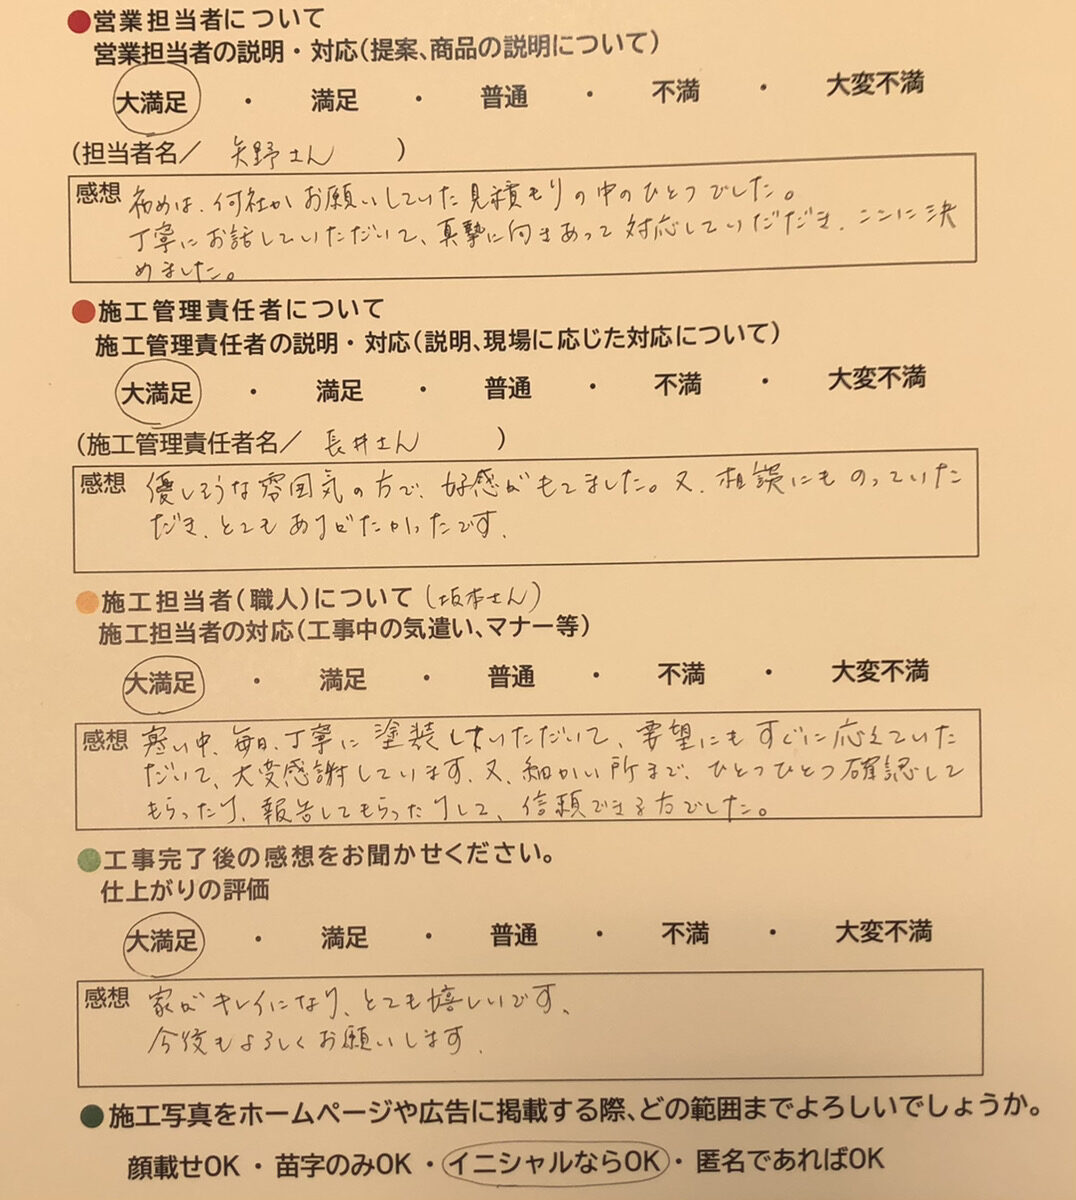 ●営業担当者について
営業担当者の説明・対応(提案、商品の説明について)
大満足 ・ 満足 ・ 普通 ・ 不満 ・ 大変不満
(担当者名/ 矢野さん )
感想 初めは、何社かお願いしていた見積もりの中のひとつでした。
丁寧にお話していただいて、真摯に向きあって対応していただき、ここに決
めました。
●施工管理責任者について
施工管理責任者の説明・対応(説明、現場に応じた対応について)
大満足 ・ 満足 ・ 普通 ・ 不満 ・ 大変不満
(施工管理責任者名/ 長井さん )
感想 優しそうな雰囲気の方で、好感がもてました。又、相談にものっていた
だき、とてもありがたかったです。
●施工担当者(職人)について (坂本さん)
施工担当者の対応(工事中の気遣い、マナー等)
大満足 ・ 満足 ・ 普通 ・ 不満 ・ 大変不満
感想 寒い中、毎日、丁寧に塗装していただいて、要望にもすぐに応えていた
だいて、大変感謝しています。又、細かい所まで、ひとつひとつ確認して
もらったり、報告してもらったりして、信頼できる方でした。
●工事完了後の感想をお聞かせください。
仕上がりの評価
大満足 ・ 満足 ・ 普通 ・ 不満 ・ 大変不満
感想 家がキレイになり、とても嬉しいです。
今後もよろしくお願いします。
●施工写真をホームページや広告に掲載する際、どの範囲までよろしいでしょうか。
顔載せOK ・ 苗字のみOK ・ イニシャルならOK ・ 匿名であればOK